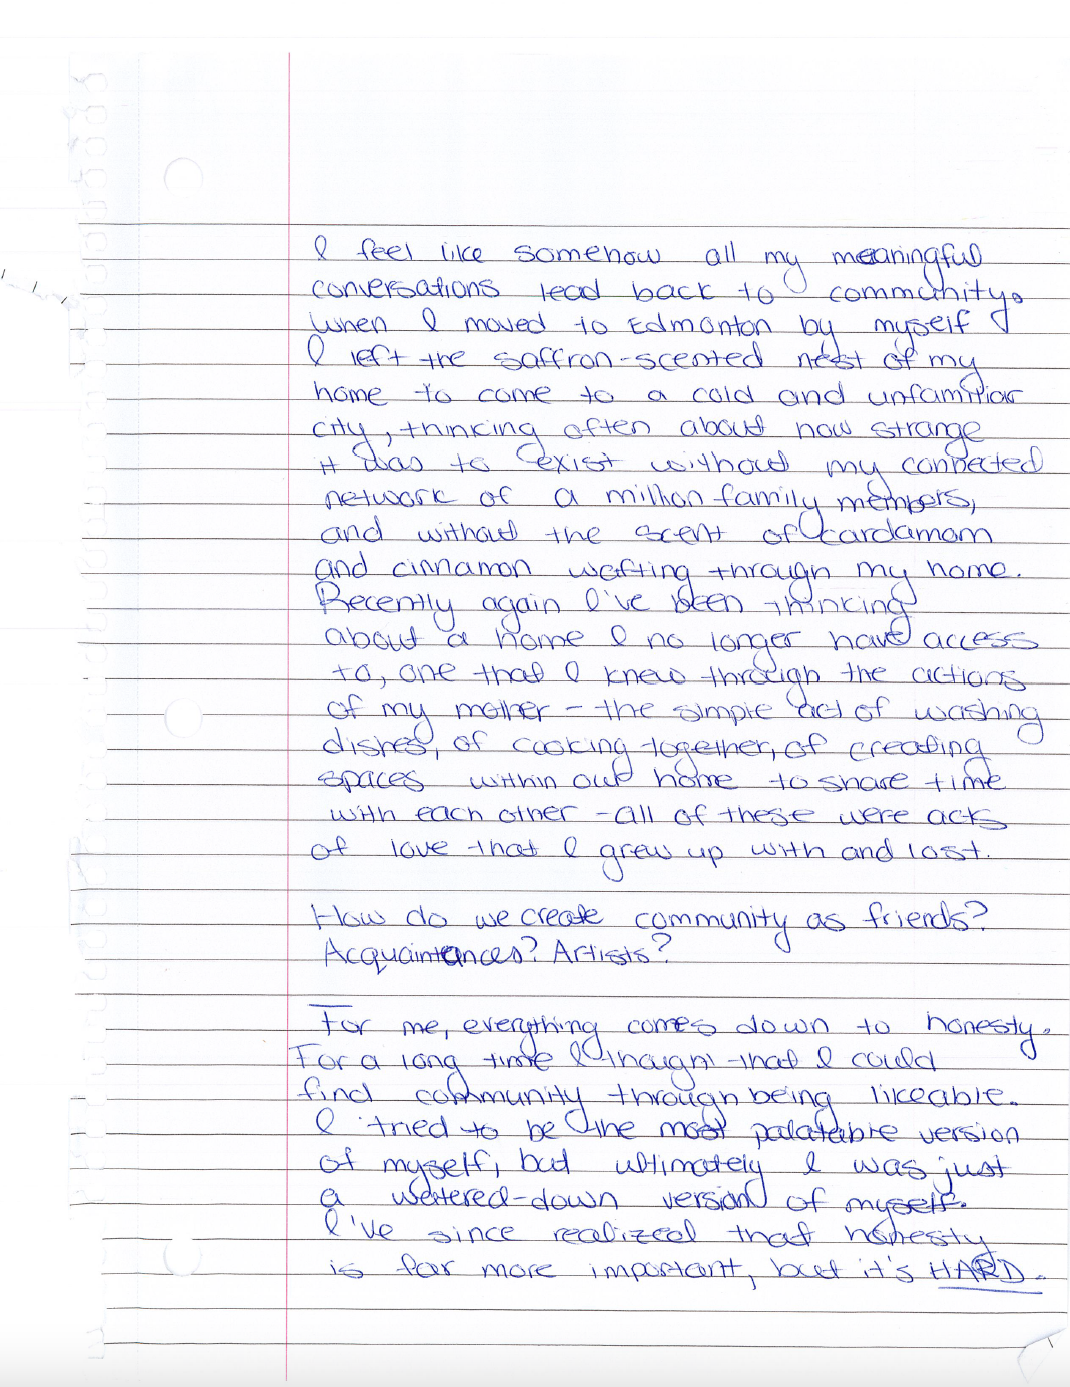 I feel like somehow all my meaningful
conversations lead back to community.
When I moved to Edmonton by myself
I left the saffron-scented nest of my
home to come to a cold and unfamiliar
city, thinking often about how strange
it was to exist without my connected
network of a million family members,
and without the scent of cardamom
and cinnamon wafting through my home.
Recently again I've been thinking
about a home I no longer have access
to, one that I knew through the actions
of my mother - the simple act of washing
dishes, of cooking together, of creating
spaces within our home to share time
with each other - all of these were acts
of love that I grew up with and lost.
How do we create community as friends?
Acquaintances? Artists?
For me, everything comes down to honesty.
For a long time I thought that I could
find community through being likeable.
I tried to be the most palatable version
of myself, but ultimately I was just
a watered-down version of myself.
I've since realized that honesty
is far more important, but it's HARD.